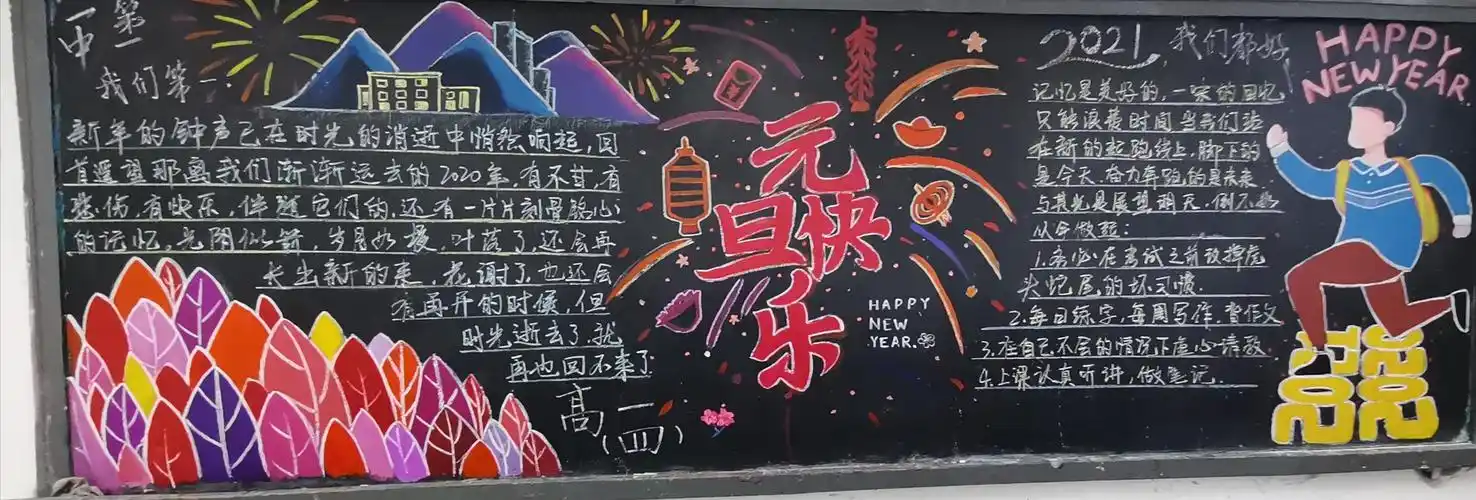 第一中
我们第一
新年的钟声已在时光的消逝中悄然响起，回
首遥望那离我们渐渐远去的2020年，有不甘，有
悲伤，有快乐，伴随它们的，还有一片片刻骨铭心
的记忆，光阴似箭，岁月如梭，叶落了，还会再
长出新的来，花谢了，也还会
有再开的时候，但
时光逝去了，就
再也回不来了
高一
(四)
元旦快乐
HAPPY
NEW
YEAR.
2021，我们都好
记忆是美好的，一味的回忆
只能浪费时间，当我们站
在新的起跑线上，脚下的
是今天，奋力奔跑的是未来
与其光是展望明天，倒不如
从今做起：
1.务必在考试之前改掉虎
头蛇尾的坏习惯。
2.每日练字，每周写作，背作文
3.在自己不会的情况下虚心请教.
4.上课认真听讲，做笔记.
HAPPY
NEW YEAR.
2021
2020